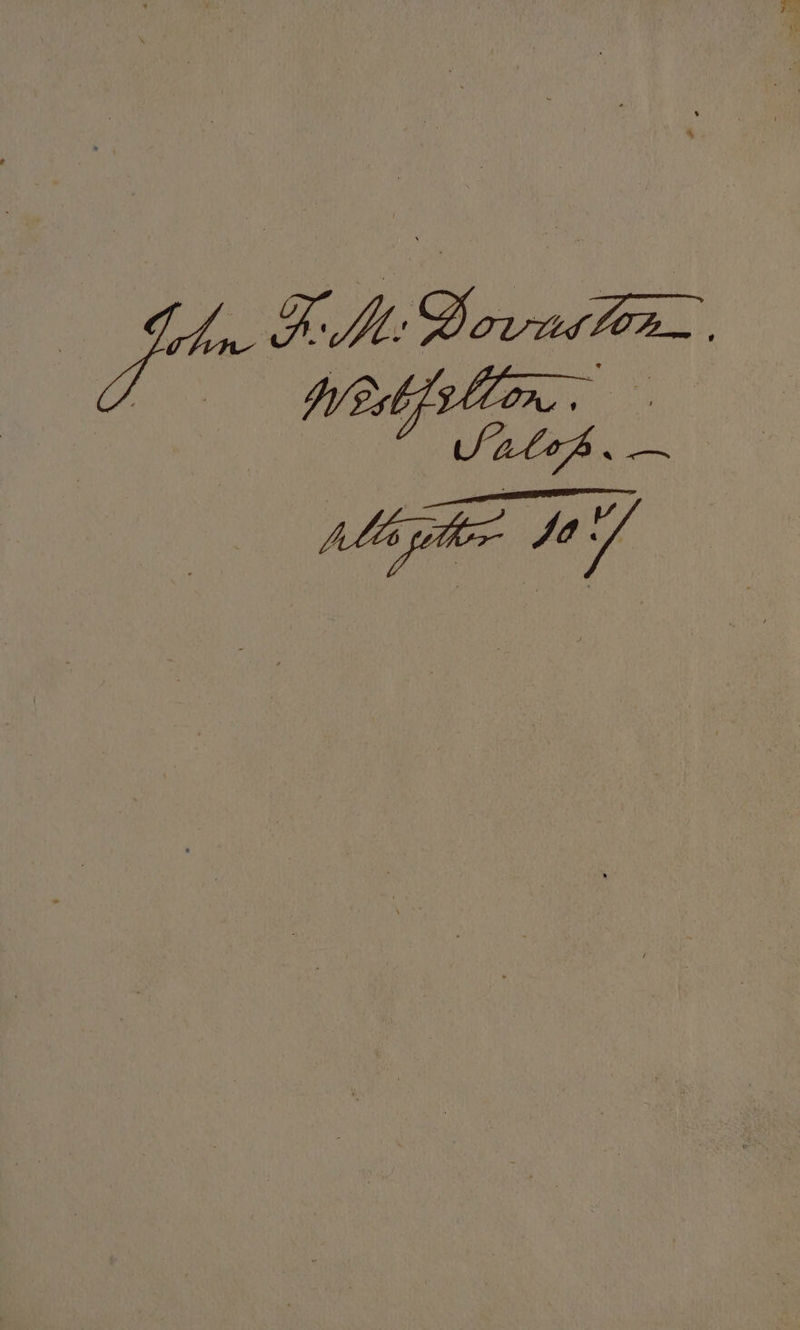 John F. M. Dovaston.
Westfelton.
Salop. —
Altogether